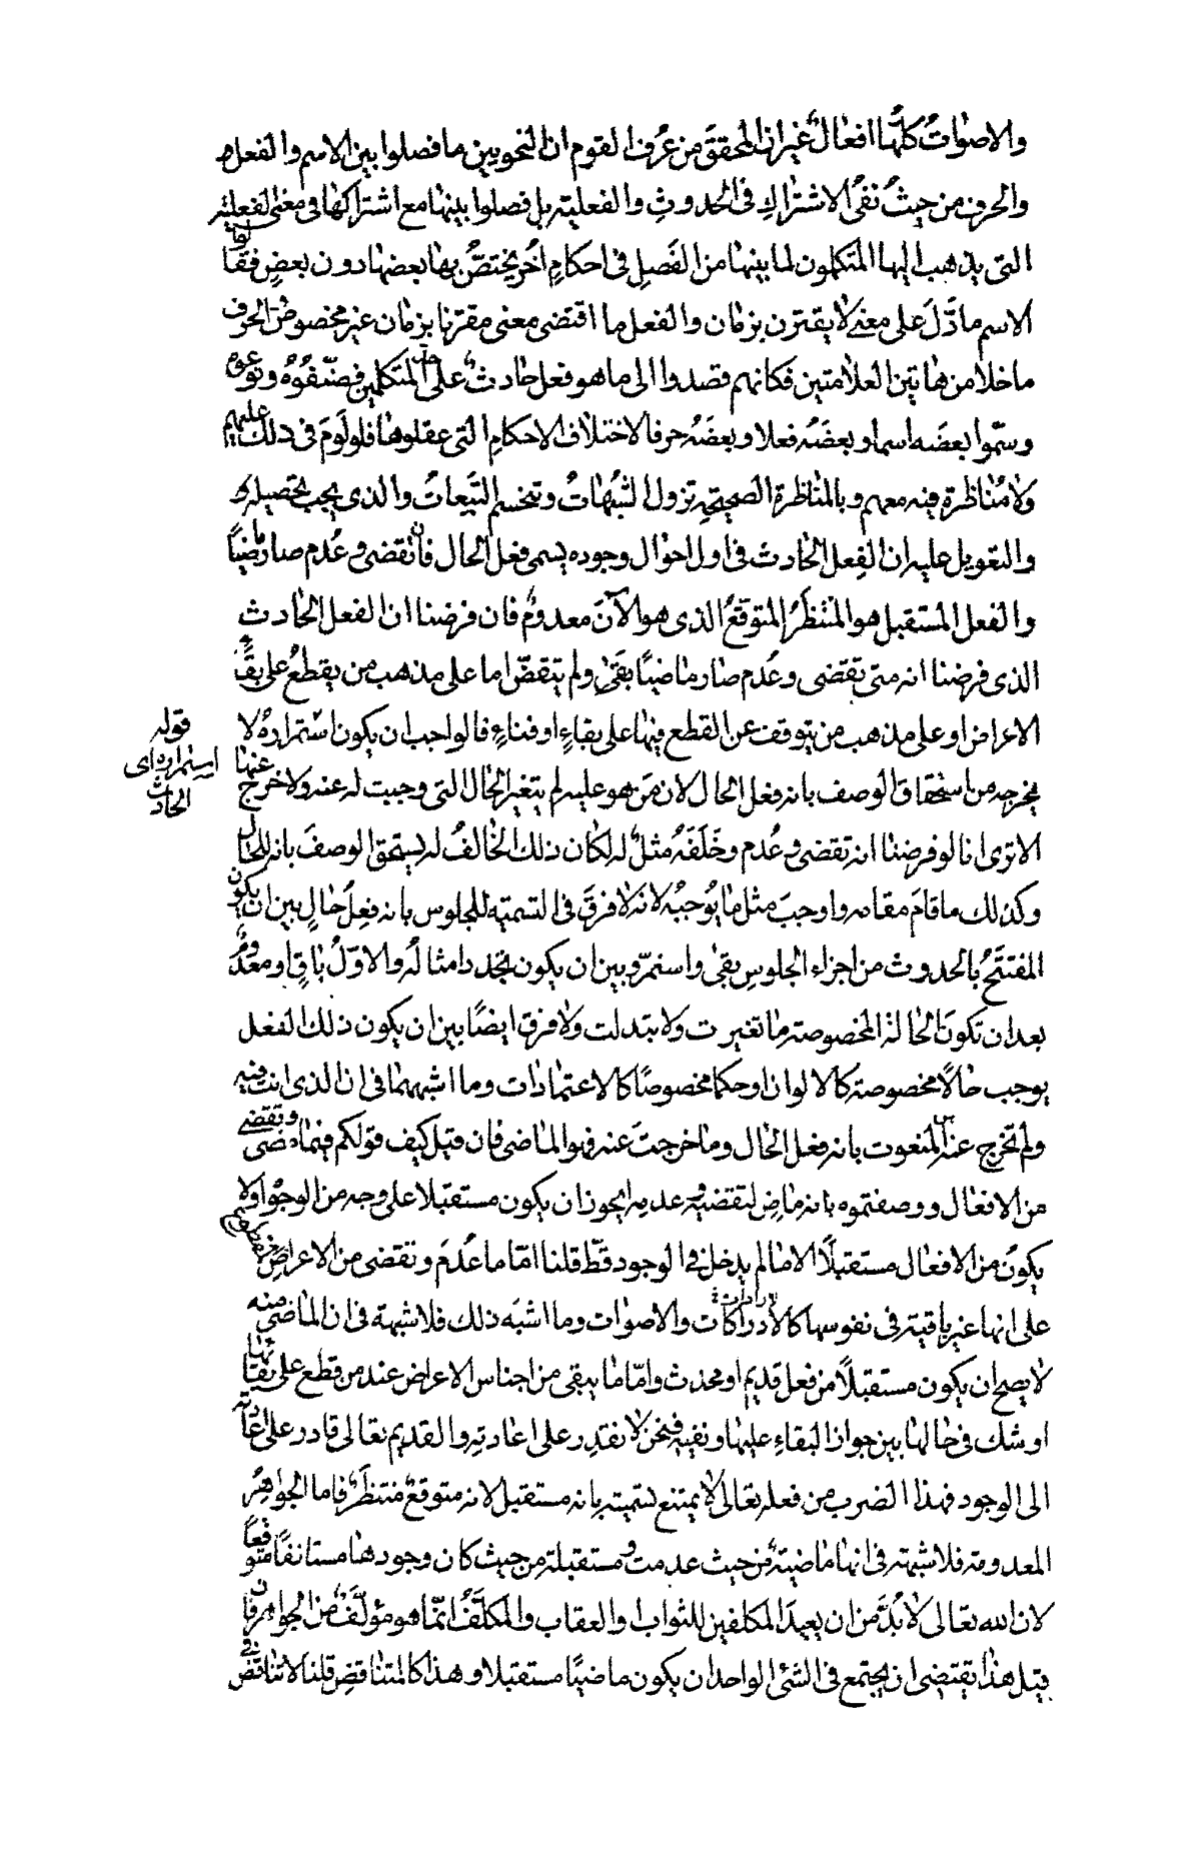 والاصوات كلها افعال غير ان المحقق من عرف القوم ان النحويين ما فصلوا بين الاسم والفعل
والحرف من حيث نفي الاشتراك في الحدوث والفعلية بل فصلوا بينها مع اشتراكها في معنى الفعلية
التي يذهب اليها المتكلمون لما بينها من الفصل في احكام اخر يختص بها بعضها دون بعض فقالوا
الاسم ما دل على معنى لا يقترن بزمان والفعل ما اقتضى معنى مقترنا بزمان غير مخصوص والحرف
ما خلا من هاتين العلامتين فكانهم قصدوا الى ما هو فعل حادث على المتكلمين فصنفوه ونوعوه
وسموا بعضه اسما وبعضه فعلا وبعضه حرفا لاختلاف الاحكام التي عقلوها فلا لوم في ذلك عليهم
ولا مناظرة فيه معهم وبالمناظرة الصحيحة تزول الشبهات وتنحسم التبعات والذي يجب تحصيله
والتعويل عليه ان الفعل الحادث في اول احوال وجوده يسمى فعل الحال فان تقضى وعدم صار ماضيا
والفعل المستقبل هو المنتظر المتوقع الذي هو الآن معدوم فان فرضنا ان الفعل الحادث
الذي فرضنا انه متى تقضى وعدم صار ماضيا بقي ولم يتقض اما على مذهب من يقطع على بقاء
الاعراض او على مذهب من يتوقف عن القطع فيها على بقاء او فناء فالواجب ان يكون استمراره لا
يخرجه من استحقاق الوصف بانه فعل الحال لان من هو عليه لم يتغير الحال التي وجبت له عنه ولا خرج عنها
الا ترى انا لو فرضنا انه تقضى وعدم وخلفه مثل له لكان ذلك الخالف له يستحق الوصف بانه للحال
وكذلك ما قام مقامه واوجب مثل ما يوجبه لانه لا فرق في التسمية للجلوس بانه فعل حال بين ان يكون
المفتتح بالحدوث من اجزاء الجلوس بقى واستمر وبين ان يكون تجدد امثاله والاول باق او معدوم
بعد ان تكون الحالة المخصوصة ما تغيرت ولا تبدلت ولا فرق ايضا بين ان يكون ذلك الفعل
يوجب حالا مخصوصة كالالوان او حكما مخصوصا كالاعتمادات وما اشبههما في ان الذي انت فيه
ولم تخرج عنه المنعوت بانه فعل الحال وما خرجت عنه فهو الماضي فان قيل كيف قولكم فيما مضى وتقضى
من الافعال ووصفتموه بانه ماض لتقضيه وعدمه ايجوز ان يكون مستقبلا على وجه من الوجوه او لا
يكون من الافعال مستقبلا الا ما لم يدخل في الوجود قط قلنا اما ما عدم وتقضى من الاعراض
على انها غير باقية في نفوسها كالادراكات والاصوات وما اشبه ذلك فلا شبهة في ان الماضي منه
لا يصح ان يكون مستقبلا من فعل قديم او محدث واما ما يبقى من اجناس الاعراض عند من قطع على بقائها
او شك في حالها بين جواز البقاء عليها ونفيه فنحن لا نقدر على اعادته والقديم تعالى قادر على اعادته
الى الوجود فهذا الضرب من فعله تعالى لا يمتنع تسميته بانه مستقبل لانه متوقع منتظر فاما الجواهر
المعدومة فلا شبهة في انها ماضية من حيث عدمت ومستقبلة من حيث كان وجودها مستانفا متوقعا
لان الله تعالى لا بد من ان يعيد المكلفين للثواب والعقاب والمكلف انما هو مؤلف من الجواهر فان
قيل هذا يقتضي ان يجتمع في الشئ الواحد ان يكون ماضيا مستقبلا وهذا كالمتناقض قلنا لا تناقض في
قوله
استمراره اى
الحادث